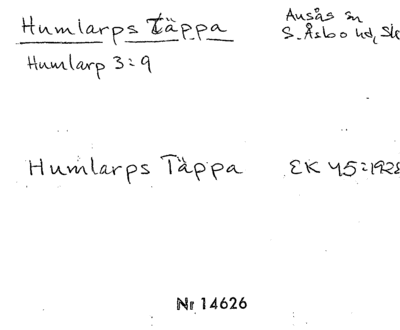 Humlarps Täppa
Ausås sn
S. Åsbo hd, Sk
Humlarp 3:9
Humlarps Täppa EK 45:1928
Nr 14626